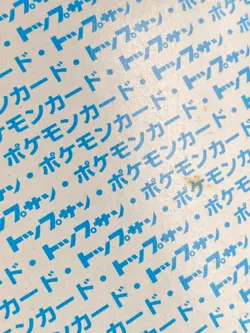 トップサン
ポケモンカード・トップサン
トップサン・ポケモンカード・
ポケモンカード・トップサン・
トップサン・ポケモンカード・
ポケモンカード・トップサン・
トップサン・ポケモンカード・
ポケモンカード・トップサン
トップサン・ポケモンカード
ポケモンカード・トップサン
ポケモンカード